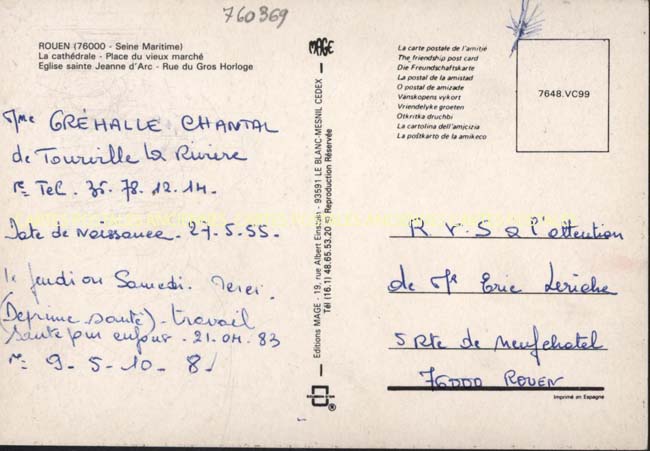 760369
ROUEN (76000 - Seine Maritime)
La cathédrale - Place du vieux marché
Eglise sainte Jeanne d'Arc - Rue du Gros Horloge
Mme GRÉHALLE CHANTAL
de Tourville La Riviere
n= Tel. 35. 78. 12. 14.
Date de Naissance. 27. 5. 55.
le jeudi ou Samedi. Merci.
(Deprime santé) - travail
santé pour enfant. 21. 04. 83
n= 9. 5. 10. 8
MAGE
Editions MAGE - 19, rue Albert Einstein - 93591 LE BLANC-MESNIL CEDEX -
Tél (16.1) 48.65.53.20 Reproduction Réservée
La carte postale de l'amitié
The friendship post card
Die Freundschaftskarte
La postal de la amistad
O postal de amizade
Vänskapens vykort
Vriendelyke groeten
Otkritka druchbi
La cartolina dell'amicizia
La poŝtkarto de la amikeco
7648.VC99
R. V. S a l'attention
de Mr Eric Leriche
5 Rte de Neufchatel
76000 ROUEN
Imprimé en Espagne